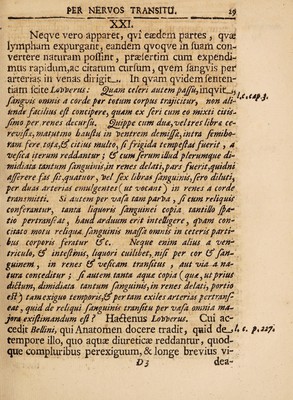 PER NERVOS TRANSITU. 29
XXI.
Neqve vero apparet, qvi eædem partes, qvæ
lympham expurgant, eandem qvoqve in suam con-
vertere naturam possint, præsertim cum expendi-
mus rapidum, ac citatum cursum, qvem sangvis per
arterias in venas dirigit. In qvam qvidem senten-
tiam scite Lowerus: Quam celeri autem passu, inqvit,
l. c. cap. 3.
sanguis omnis a corde per totum corpus trajicitur, non ali-
unde facilius est concipere, quam ex seri cum eo mixti citis-
simo per renes decursu. Quippe cum duæ, vel tres libræ ce-
revisiæ, matutino haustu in ventrem demissæ, intra semiho-
ram fere totæ, & citius multo, si frigida tempestas fuerit, a
vesica iterum reddantur; & cum serum illud plerumque di-
midiata tantum sanguinis, in renes delati, pars fuerit, quidni
asserere fas sit, quatuor, vel sex libras sanguinis, sero diluti,
per duas arterias emulgentes (ut vocant) in renes a corde
transmitti. Si autem per vasa tam parva, si cum reliquis
conferantur, tanta liquoris sanguinei copia tantillo spa-
tio pertranseat, haud arduum erit intelligere, quam con-
citato motu reliqua sanguinis massa omnis in ceteris parti-
bus corporis feratur &c. Neque enim alius a ven-
triculo, & intestinis, liquori cuilibet, nisi per cor & san-
guinem, in renes & vesicam transitus, aut via a na-
tura conceditur; si autem tanta aqua copia (quæ, ut prius
dictum, dimidiata tantum sanguinis, in renes delati, portio
est) tam exiguo temporis, & per tam exiles arterias pertrans-
eat, quid de reliqui sanguinis transitu per vasa omnia ma-
jora existimandum est? Hactenus Lowerus. Cui ac-
cedit Bellini, qvi Anatomen docere tradit, quid de
l. c. p. 227.
tempore illo, quo aquæ diureticæ reddantur, quod-
que compluribus perexiguum, & longe brevius vi-
D 3 dea-